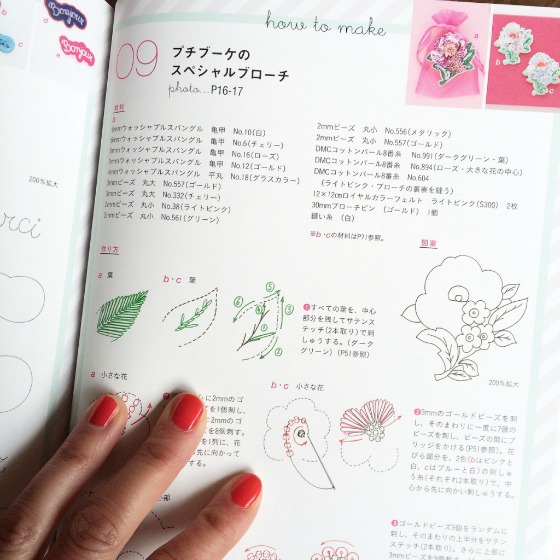 Bonjour
Bonjour
200%拡大
how to make
09
プチブーケの
スペシャルブローチ
photo...P16-17
a
b
c
材料
a
6mmウォッシャブルスパングル 亀甲 No.10(白)
ウォッシャブルスパングル 亀甲 No.6(チェリー)
ウォッシャブルスパングル 亀甲 No.15(ローズ)
ウォッシャブルスパングル 亀甲 No.12(ゴールド)
ウォッシャブルスパングル 平丸 No.18(グラスカラー)
ビーズ 丸大 No.557(ゴールド)
ビーズ 丸大 No.332(チェリー)
2mmビーズ 丸小 No.38(ライトピンク)
2mmビーズ 丸小 No.561(グリーン)
2mmビーズ 丸小 No.556(メタリック)
2mmビーズ 丸小 No.557(ゴールド)
DMCコットンパール8番糸 No.991(ダークグリーン・葉)
DMCコットンパール8番糸 No.894(ローズ・大きな花の中心)
DMCコットンパール8番糸 No.604
(ライトピンク・ブローチの裏表を縫う)
12×12cmロイヤルカラーフェルト ライトピンク(S300) 2枚
30mmブローチピン(ゴールド) 1個
縫い糸 (白)
※b・cの材料はP71参照。
作り方
図案
a 葉
b・c 葉
①すべての葉を、中心
部分を残してサテンス
テッチ(2本取り)で刺
しゅうする。(ダーク
グリーン)(P51参照)
200%拡大
a 小さな花
b・c 小さな花
心に2mmのゴ
を1個刺し、
2mmのゴ
を8個刺す。
を1列に、花
先に向かって
する。
②3mmのゴールドビーズを刺
し、そのまわりに一度に7個の
ビーズを刺し、ビーズの間にブ
リッジをかける(P51参照)。花
びら部分を、2色(bはピンクと
白、cはブルーと白)の刺しゅ
う糸(それぞれ2本取り)で、中
心から先に向かい刺しゅうする。
③ゴールドビーズ3個をランダムに
刺し、そのまわりの上半分をサテン
ステッチ(2本取り)、さらに上部に